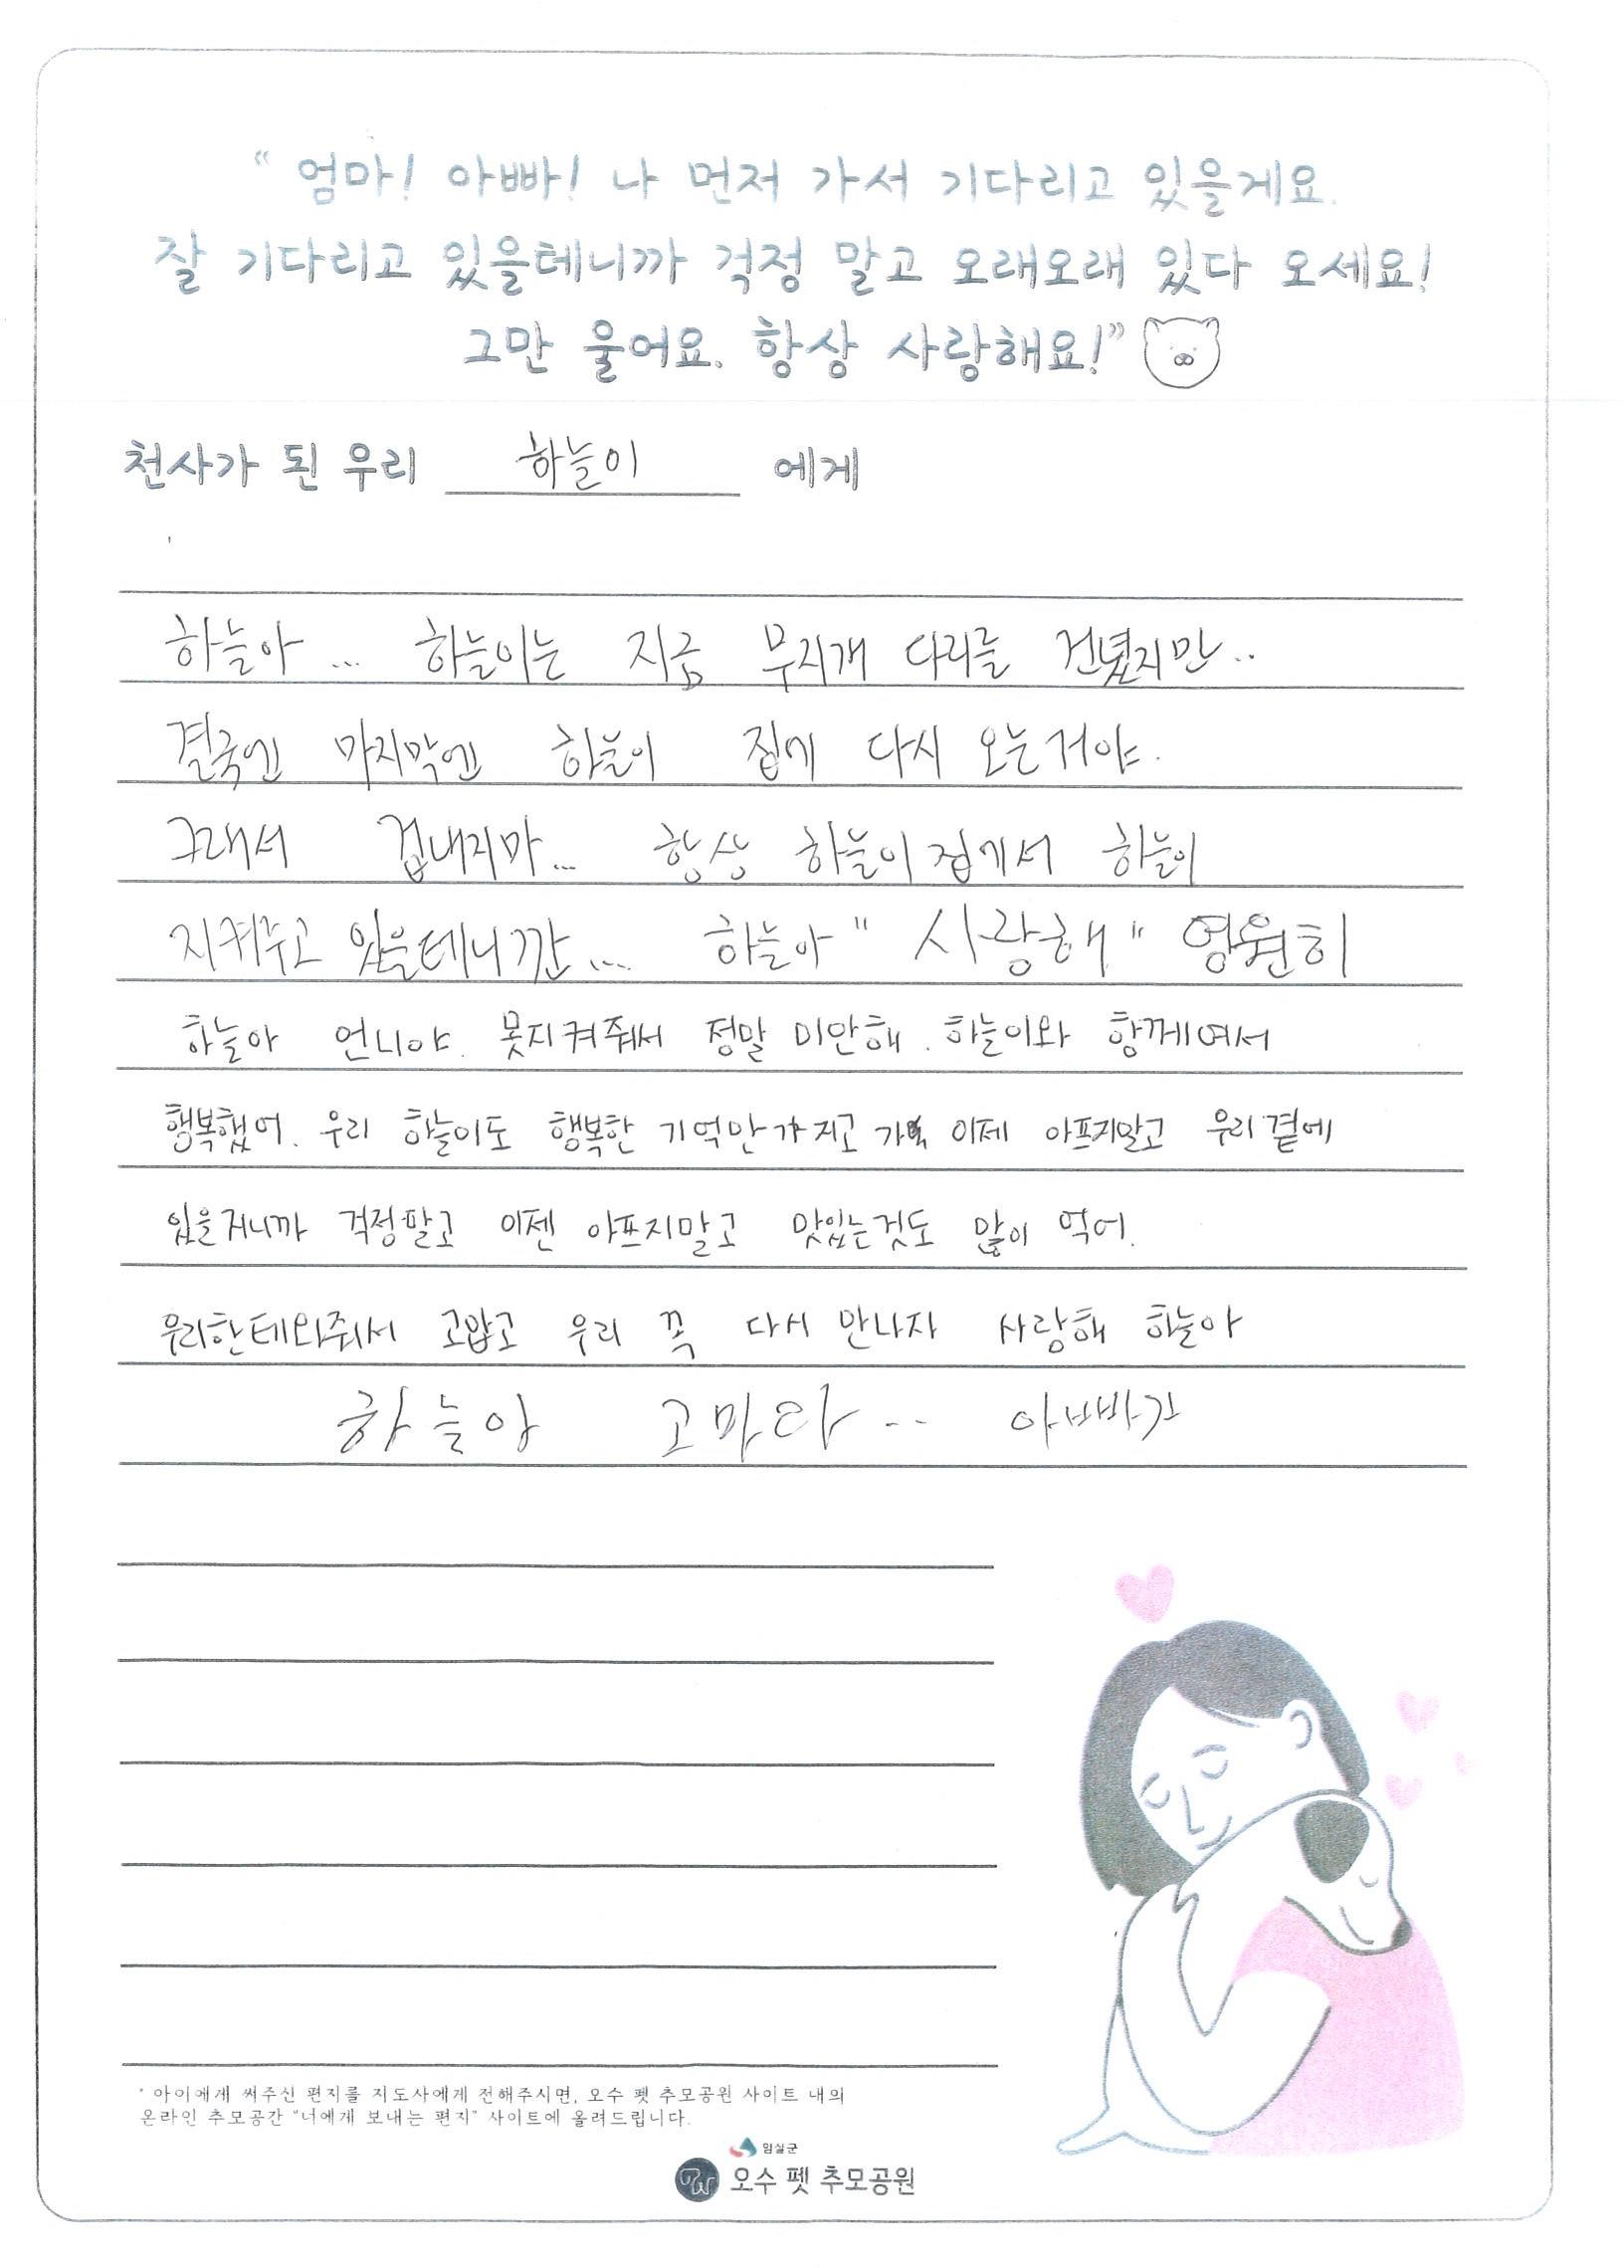 “ 엄마! 아빠! 나 먼저 가서 기다리고 있을게요.
잘 기다리고 있을테니까 걱정 말고 오래오래 있다 오세요!
그만 울어요. 항상 사랑해요!”
천사가 된 우리 하늘이 에게
하늘아 ... 하늘이는 지금 무지개 다리를 건넜지만..
결국엔 마지막엔 하늘이 집에 다시 오는거야.
그래서 겁내지마... 항상 하늘이집에서 하늘이
지켜주고 있을테니깐... 하늘아 " 사랑해 " 영원히
하늘아 언니야. 못지켜줘서 정말 미안해. 하늘이와 함께여서
행복했어. 우리 하늘이도 행복한 기억만가지고 이제 아프지말고 우리곁에
있을거니까 걱정말고 이젠 아프지말고 맛있는것도 많이 먹어.
우리한테와줘서 고맙고 우리 꼭 다시 만나자 사랑해 하늘아
하늘아 고마워.. 아빠가
* 아이에게 써주신 편지를 지도사에게 전해주시면, 오수 펫 추모공원 사이트 내의
온라인 추모공간 "너에게 보내는 편지" 사이트에 올려드립니다.
임실군
PW 오수 펫 추모공원